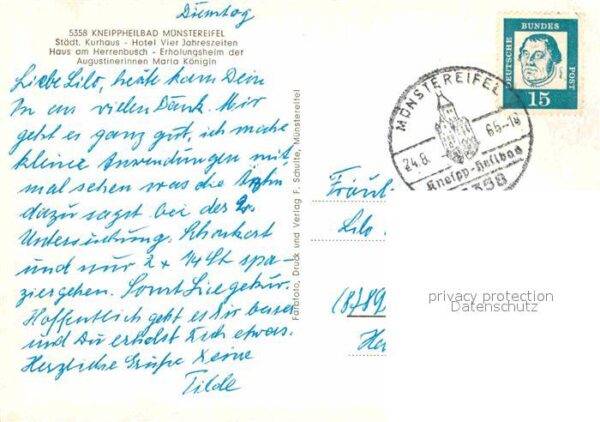 Dienstag
5358 KNEIPPHEILBAD MÜNSTEREIFEL
Städt. Kurhaus - Hotel Vier Jahreszeiten
Haus am Herrenbusch - Erholungsheim der
Augustinerinnen Maria Königin
Liebe Lilo, heute kam Dein
an vielen Dank. Mir
geht es ganz gut, ich mache
kleine Anwendungen mit,
mal sehen was die Ärztin
dazu sagst bei der 2.
Untersuchung. Schonkost
und nur 2 x 1/4 St spa-
ziergehen. Sonst Liegekur.
Hoffentlich geht es Dir besser
und Du erholst Dich etwas.
Herzliche Grüße Deine
Tilde
Farbfoto, Druck und Verlag F. Schulte, Münstereifel
DEUTSCHE BUNDES POST
15
MÜNSTEREIFEL
24.8. 65-18
Kneipp-Heilbad
5358
Fräul
Lilo
(8789
He
privacy protection
Datenschutz